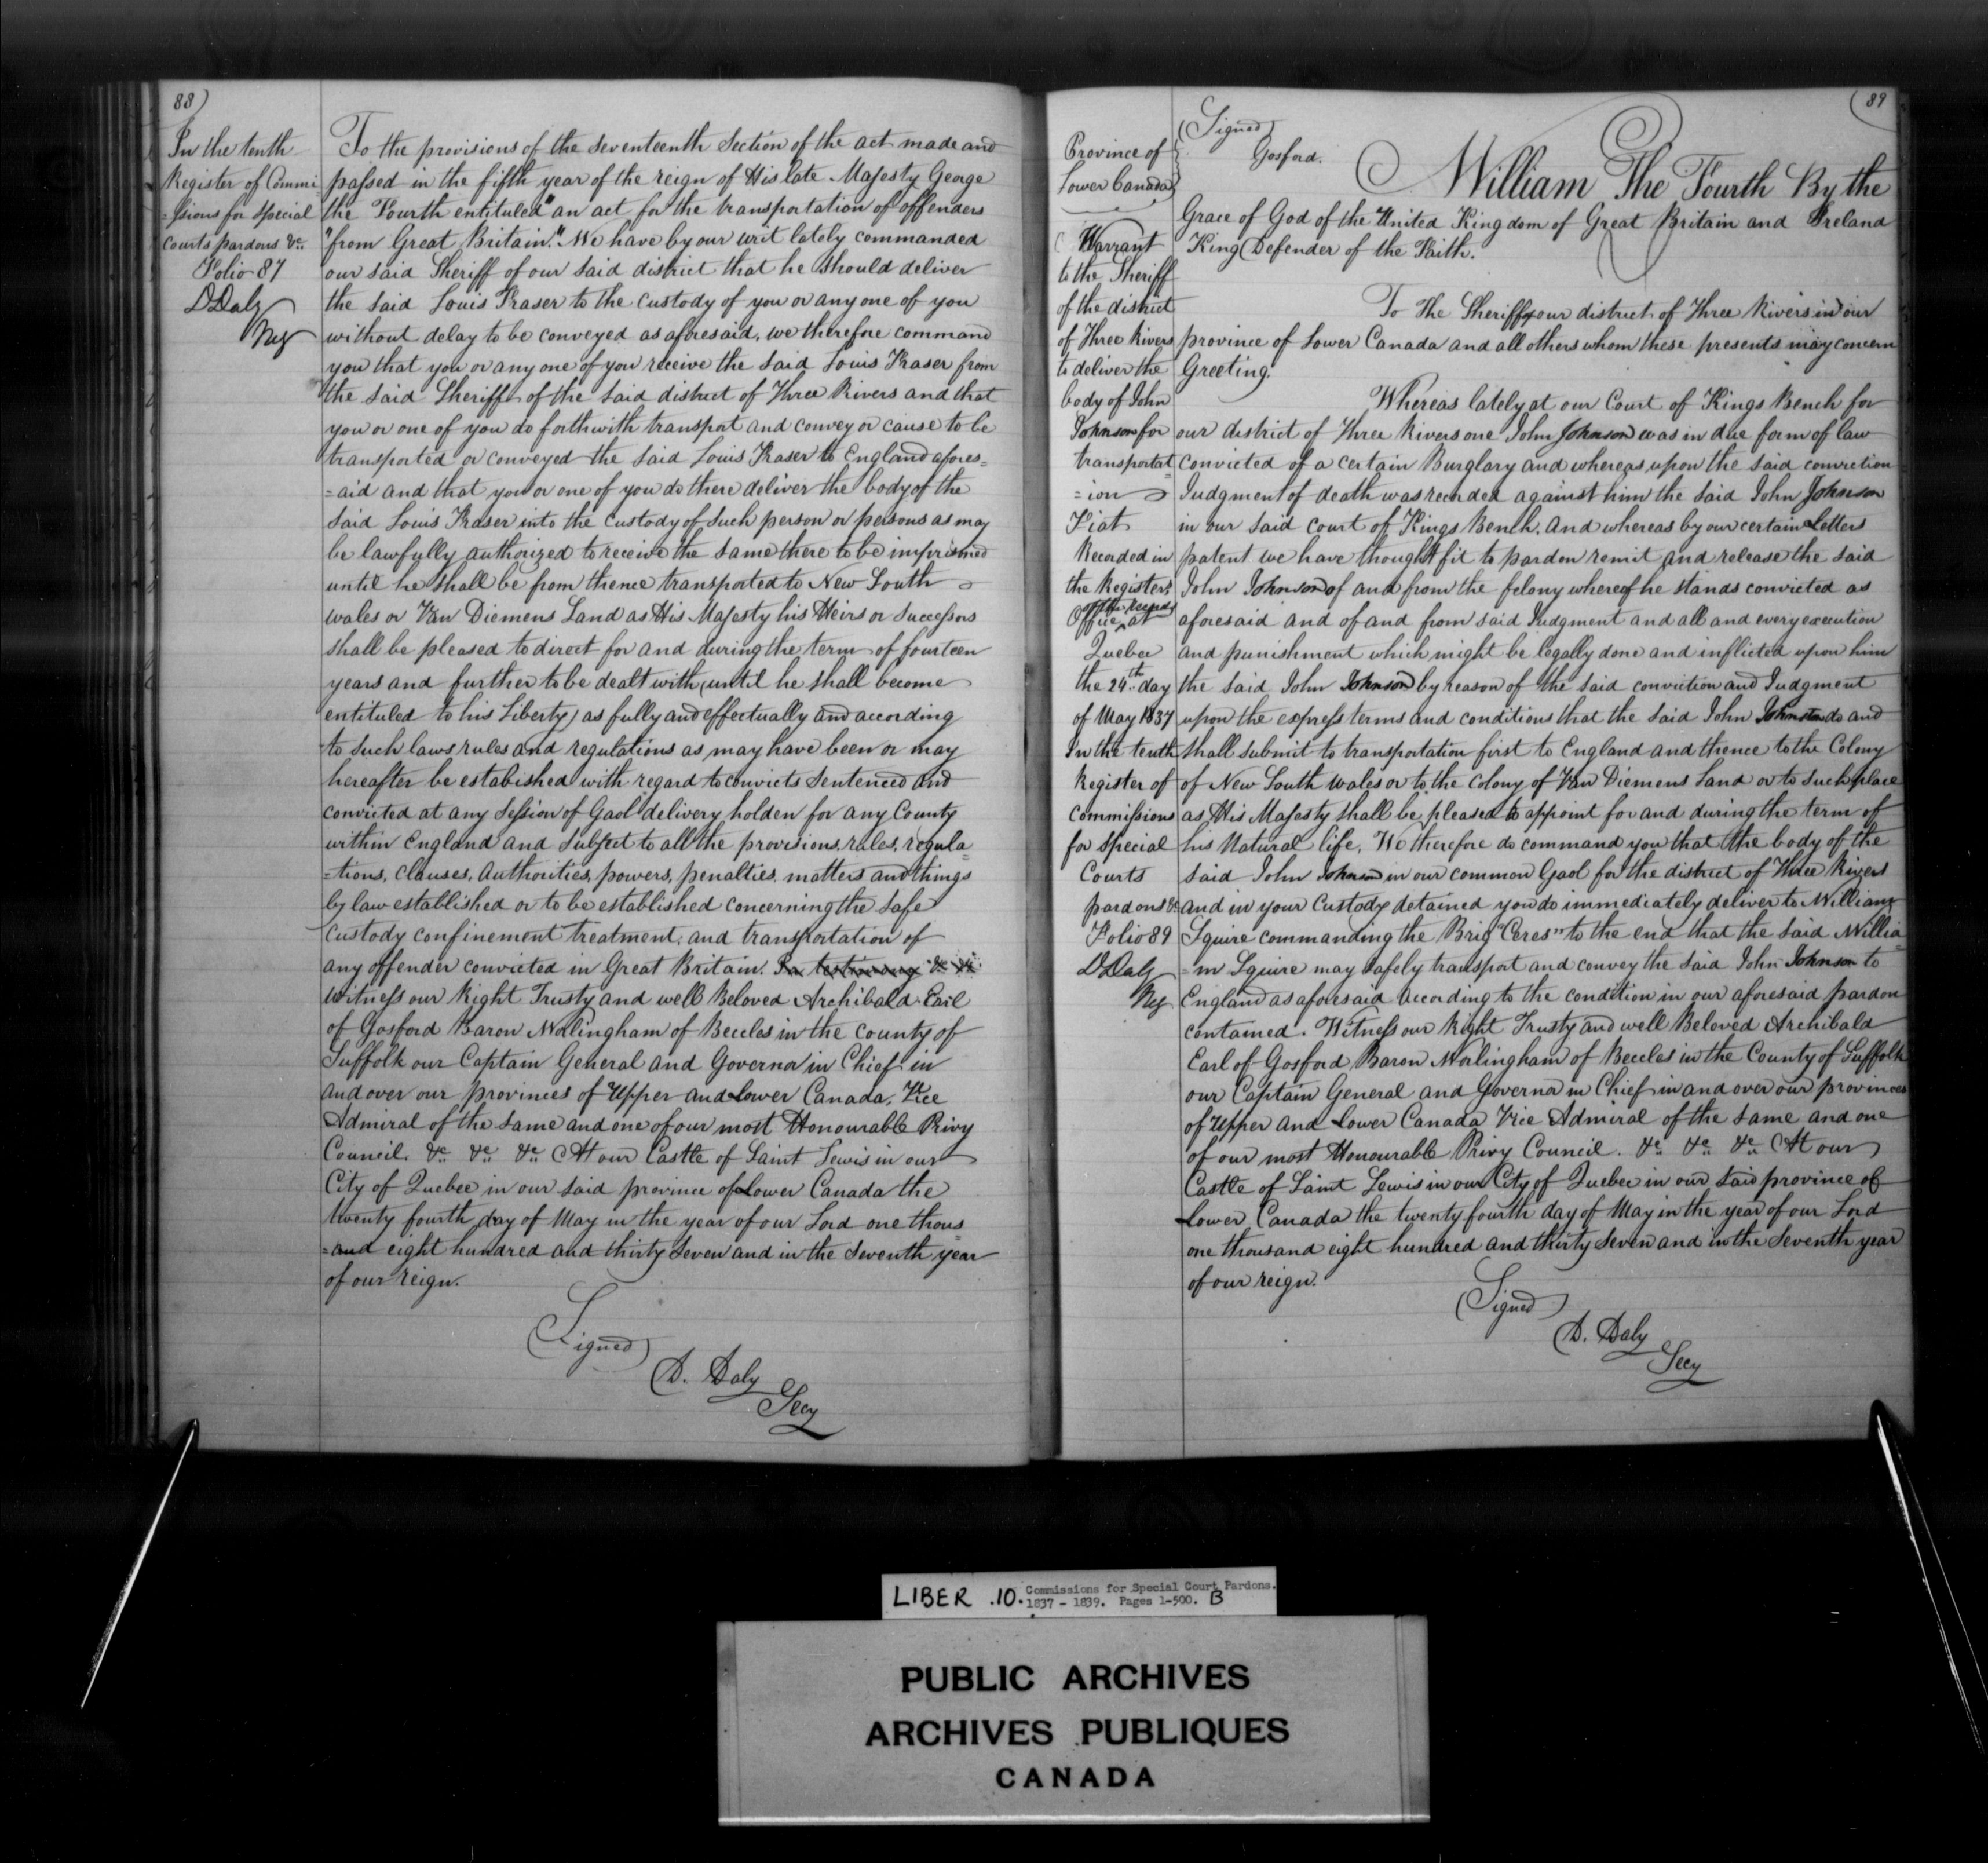 88)
In the tenth
Register of Commi
=ssions for special
courts pardons &c.
Folio 87
D Daly
Reg
To the provisions of the seventeenth Section of the act made and
passed in the fifth year of the reign of His late Majesty George
the Fourth entituled "an act for the transportation of offenders
"from Great Britain". We have by our writ lately commanded
our said Sheriff of our said district that he should deliver
the said Louis Fraser to the custody of you or any one of you
without delay to be conveyed as aforesaid, we therefore command
you that you or any one of you receive the said Louis Fraser from
the said Sheriff of the said district of Three Rivers and that
you or one of you do forthwith transport and convey or cause to be
transported or conveyed the said Louis Fraser to England afores=
=aid and that you or one of you do there deliver the body of the
said Louis Fraser into the custody of such person or persons as may
be lawfully authorized to receive the same there to be imprisoned
until he shall be from thence transported to New South
wales or Van Diemens Land as His Majesty his Heirs or Successors
shall be pleased to direct for and during the term of fourteen
years and further to be dealt with (until he shall become
entituled to his Liberty) as fully and effectually and according
to such laws rules and regulations as may have been or may
hereafter be estabished with regard to convicts sentenced and
convicted at any Session of Gaol delivery holden for any County
within England and subject to all the provisions, rules, regula=
=tions, clauses, authorities, powers, penalties, matters and things
by law established or to be established concerning the safe
custody confinement treatment, and transportation of
any offender convicted in Great Britain. In testimony &c &c
Witness our Right Trusty and well Beloved Archibald Earl
of Gosford Baron Worlingham of Beccles in the county of
Suffolk our Captain General and Governor in Chief in
and over our provinces of Upper and Lower Canada, Vice
Admiral of the same and one of our most Honourable Privy
Council. &c &c &c At our Castle of Saint Lewis in our
City of Quebec in our said province of Lower Canada the
twenty fourth day of May in the year of our Lord one thous=
=and eight hundred and thirty seven and in the seventh year
of our reign.
(Signed)
D. Daly
Secy
(89
Province of
Lower Canada
Warrant
to the Sheriff
of the district
of Three Rivers
to deliver the
body of John
Johnson for
transportat=
=ion
Fiat
Recorded in
the Registers
of the Records
Office at
Quebec
the 24th day
of May 1837
In the tenth
Register of
commissions
for special
Courts
pardons &c
Folio 89
D Daly
Reg
(Signed)
Gosford.
William The Fourth By the
Grace of God of the United Kingdom of Great Britain and Ireland
King Defender of the Faith.
To the Sheriff of our district of Three Rivers in our
province of Lower Canada and all others whom these presents may concern
Greeting.
Whereas lately at our Court of Kings Bench for
our district of Three Rivers one John Johnson was in due form of law
convicted of a certain Burglary and whereas upon the said conviction
Judgment of death was recorded against him the said John Johnson
in our said court of Kings Bench. And whereas by our certain Letters
patent we have thought fit to pardon remit and release the said
John Johnson of and from the felony whereof he stands convicted as
aforesaid and of and from said Judgment and all and every execution
and punishment which might be legally done and inflicted upon him
the said John Johnson by reason of the said conviction and Judgment
upon the express terms and conditions that the said John Johnston do and
shall submit to transportation first to England and thence to the Colony
of New South wales or to the colony of Van Diemens Land or to such place
as His Majesty shall be pleased to appoint for and during the term of
his Natural life. We therefore do command you that the body of the
said John Johnson in our common Gaol for the district of Three Rivers
and in your custody detained you do immediately deliver to William
Squire commanding the Brig "Ceres" to the end that the said Willia
=m Squire may safely transport and convey the said John Johnson to
England as aforesaid according to the condition in our aforesaid pardon
contained. Witness our Right Trusty and well Beloved Archibald
Earl of Gosford Baron Worlingham of Beccles in the County of Suffolk
our Captain General and Governor in Chief in and over our provinces
of Upper and Lower Canada Vice Admiral of the same and one
of our most Honourable Privy Council. &c &c &c At our
Castle of Saint Lewis in our City of Quebec in our said province of
Lower Canada the twenty fourth day of May in the year of our Lord
one thousand eight hundred and thirty seven and in the seventh year
of our reign.
(Signed)
D. Daly
Secy
LIBER .10. Commissions for Special Court Pardons.
1837 - 1839. Pages 1-500. B
PUBLIC ARCHIVES
ARCHIVES PUBLIQUES
CANADA